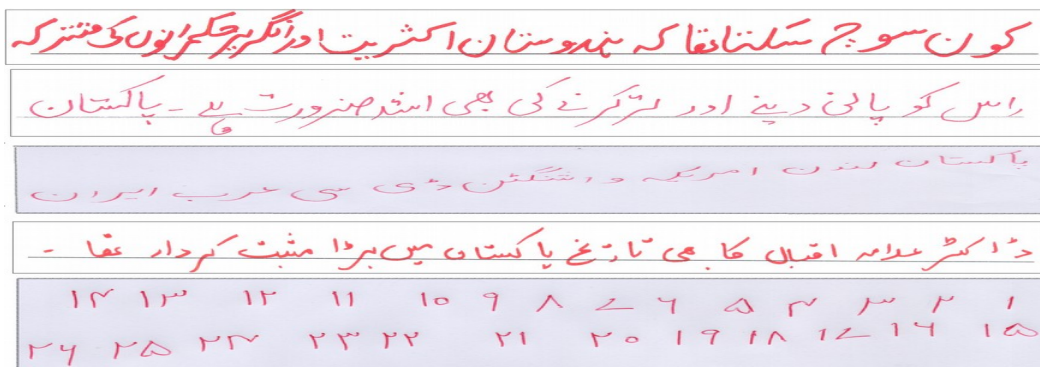 کون سوچ سکتا تھا کہ ہندوستان اکثریت اور انگریز حکمرانوں کی مشترکہ
اس کو پانی دینے اور تر کرنے کی بھی اشد ضرورت ہے۔ پاکستان
پاکستان لندن امریکہ واشنگٹن ڈی سی عرب ایران
ڈاکٹر علامہ اقبال کا بھی تاریخ پاکستان میں بڑا مثبت کردار تھا ۔
۱ ۲ ۳ ۴ ۵ ۶ ۷ ۸ ۹ ۱۰ ۱۱ ۱۲ ۱۳ ۱۴
۱۵ ۱۶ ۱۷ ۱۸ ۱۹ ۲۰ ۲۱ ۲۲ ۲۳ ۲۴ ۲۵ ۲۶